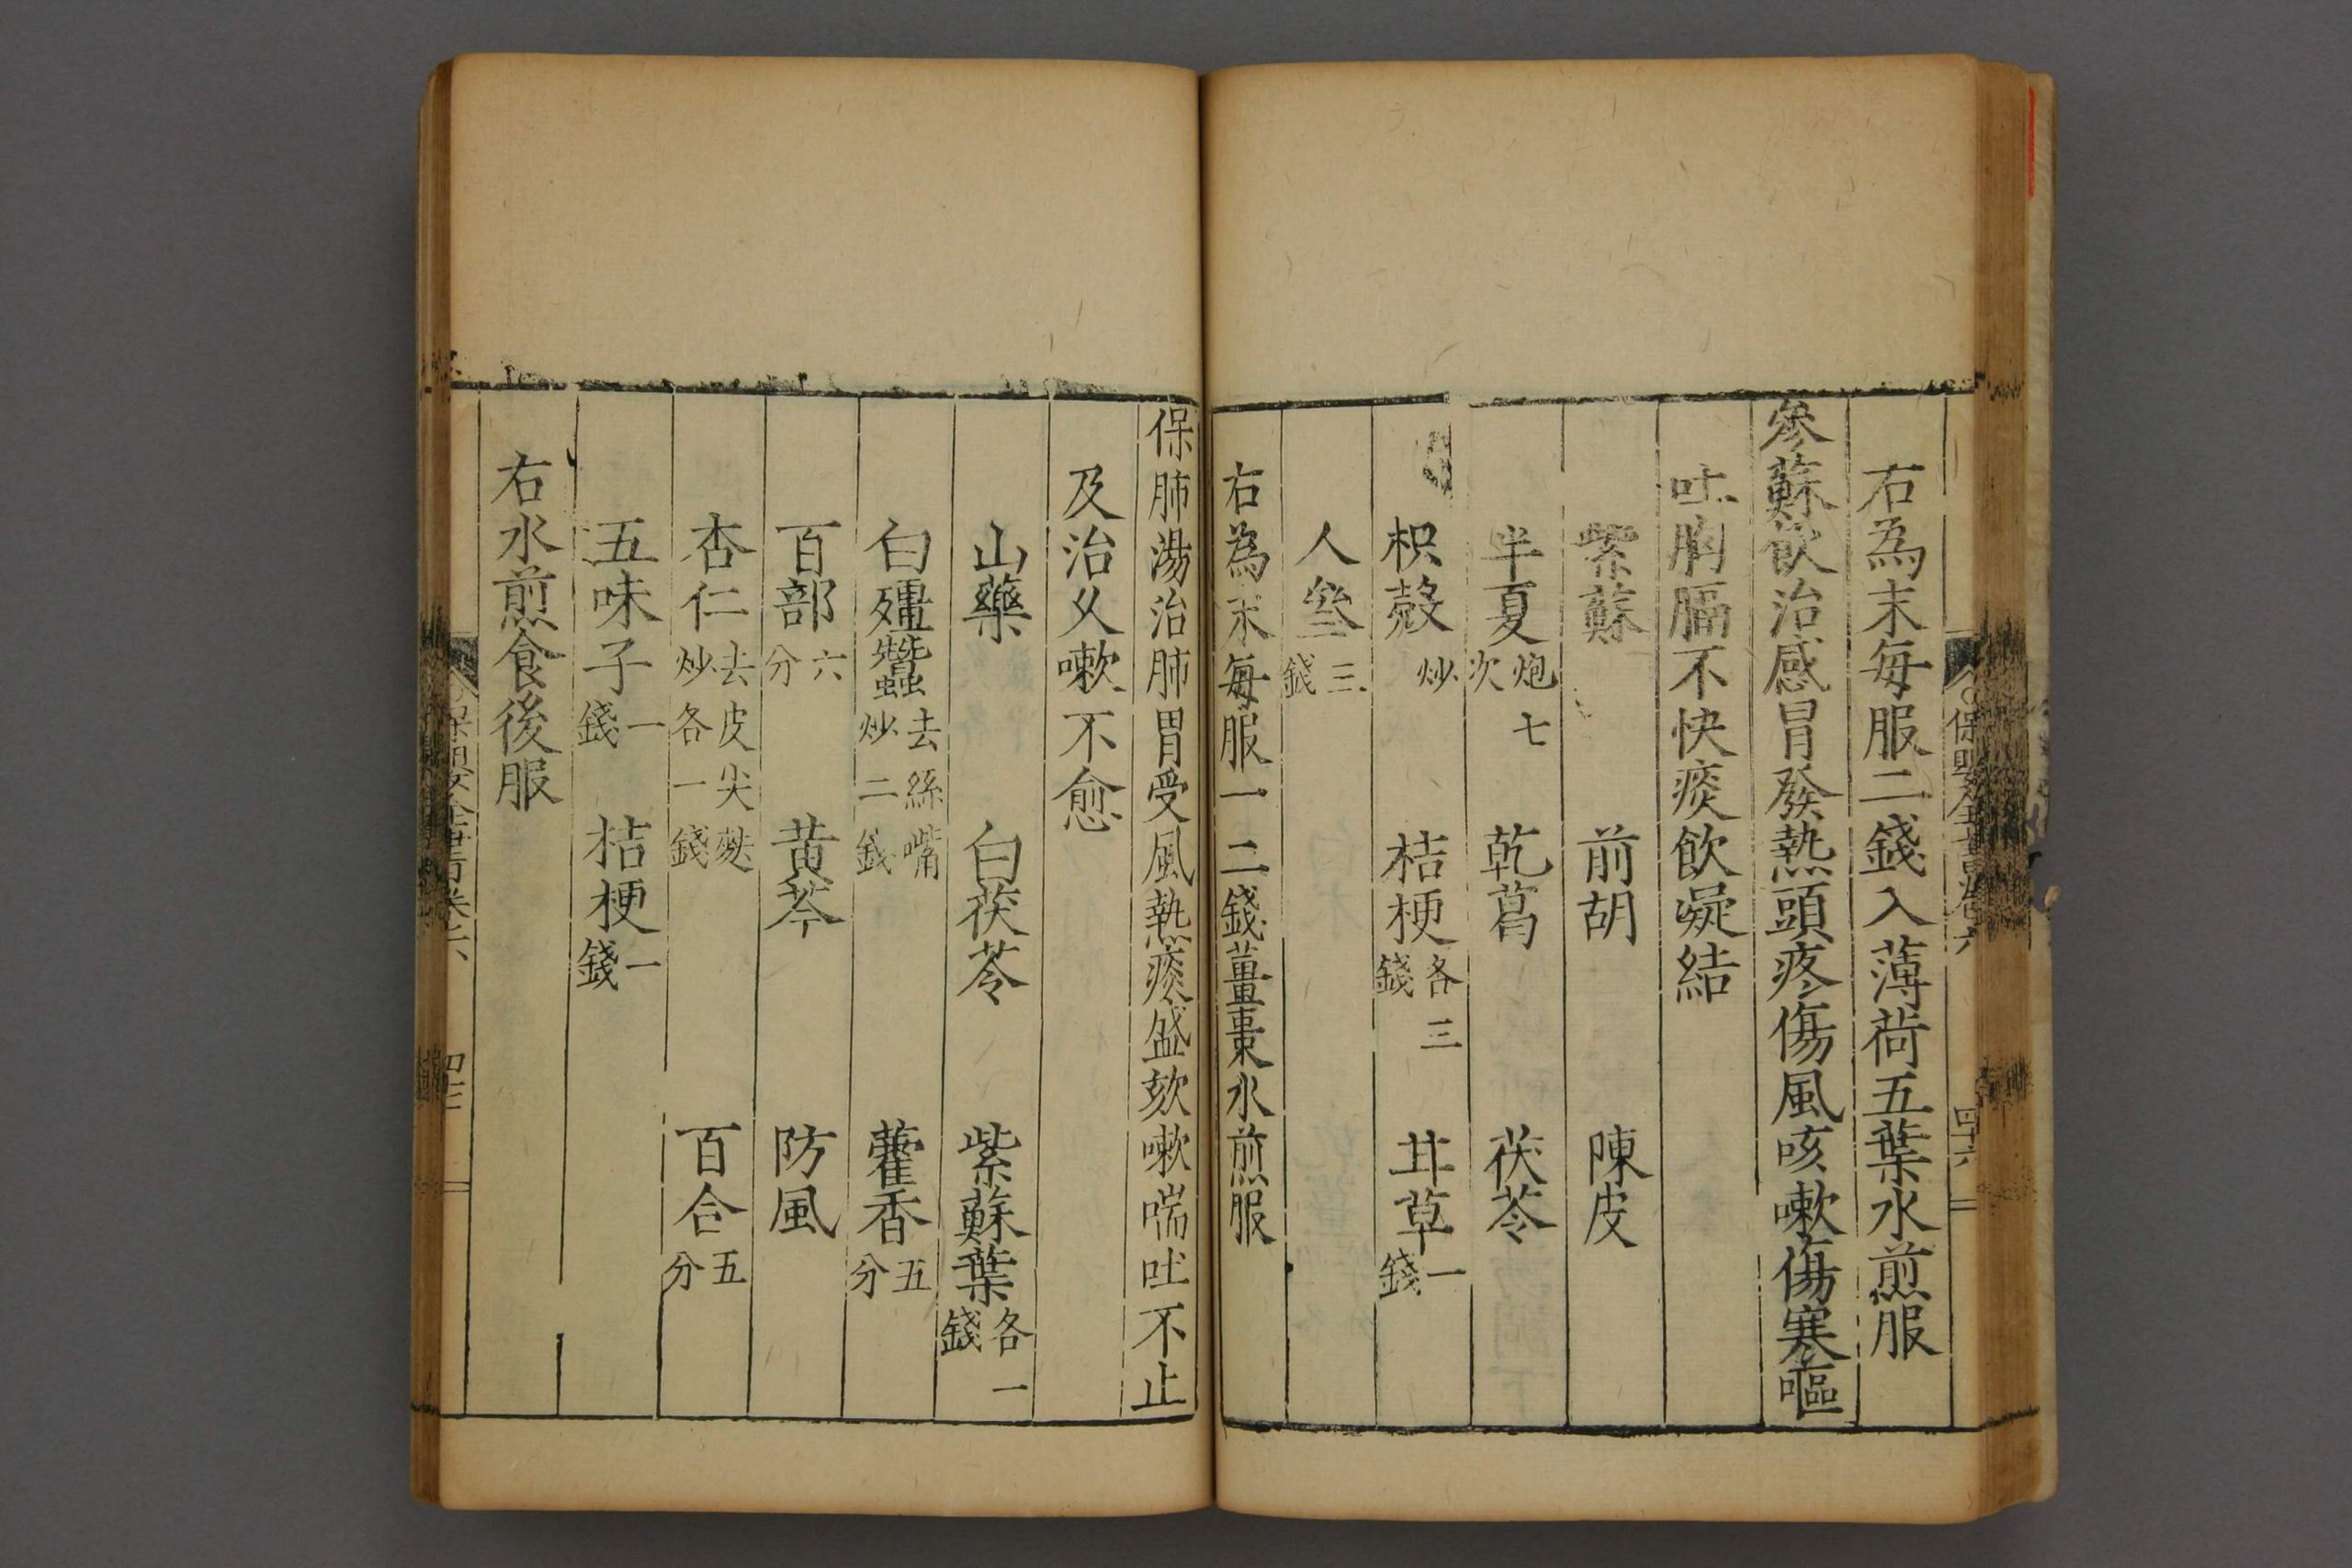 右為末每服二錢入薄荷五葉水煎服
參蘇飲治感冒發熱頭疼傷風咳嗽傷寒嘔
吐胸膈不快痰飲凝結
紫蘇 前胡 陳皮
半夏炮七次 乾葛 茯苓
枳殼炒 桔梗各三錢 甘草一錢
人參三錢
右為末每服一二錢薑棗水煎服
保肺湯治肺胃受風熱痰盛欬嗽喘吐不止
及治乆嗽不愈
山藥 白茯苓 紫蘇葉各一錢
白殭蠶去絲嘴炒二錢 藿香五分
百部六分 黃芩 防風
杏仁去皮尖麩炒各一錢 百合五分
五味子一錢 桔梗一錢
右水煎食後服